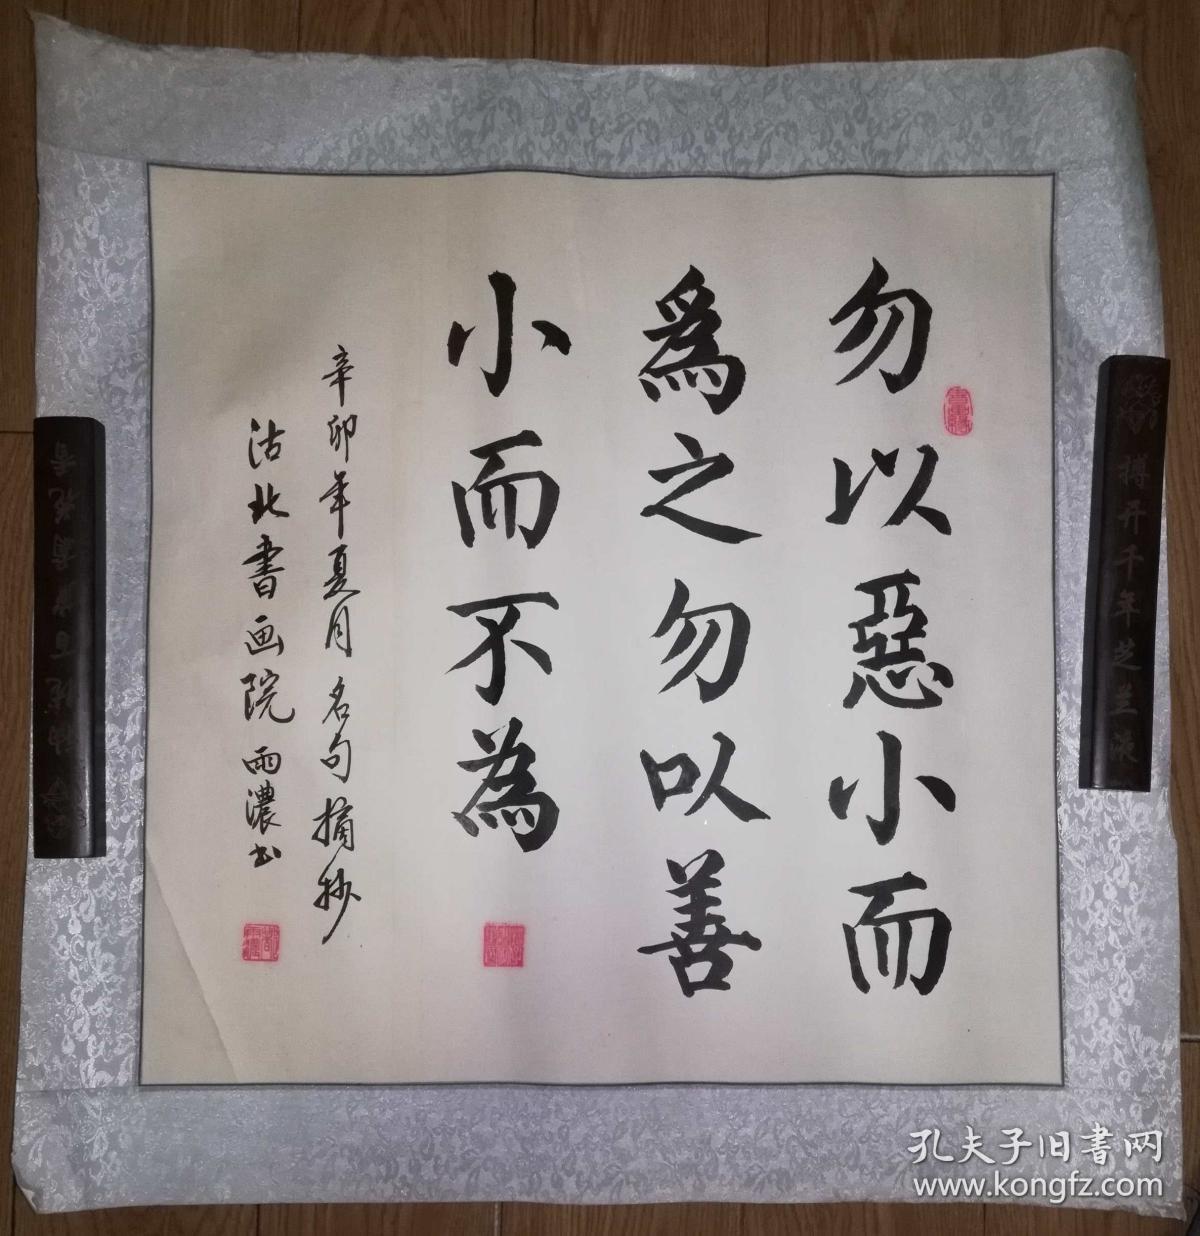 勿以惡小而
爲之勿以善
小而不為
辛卯年夏月名句摘抄
沽北書画院雨濃书
搏开千年芝兰茨
孔夫子旧書网
www.kongfz.com